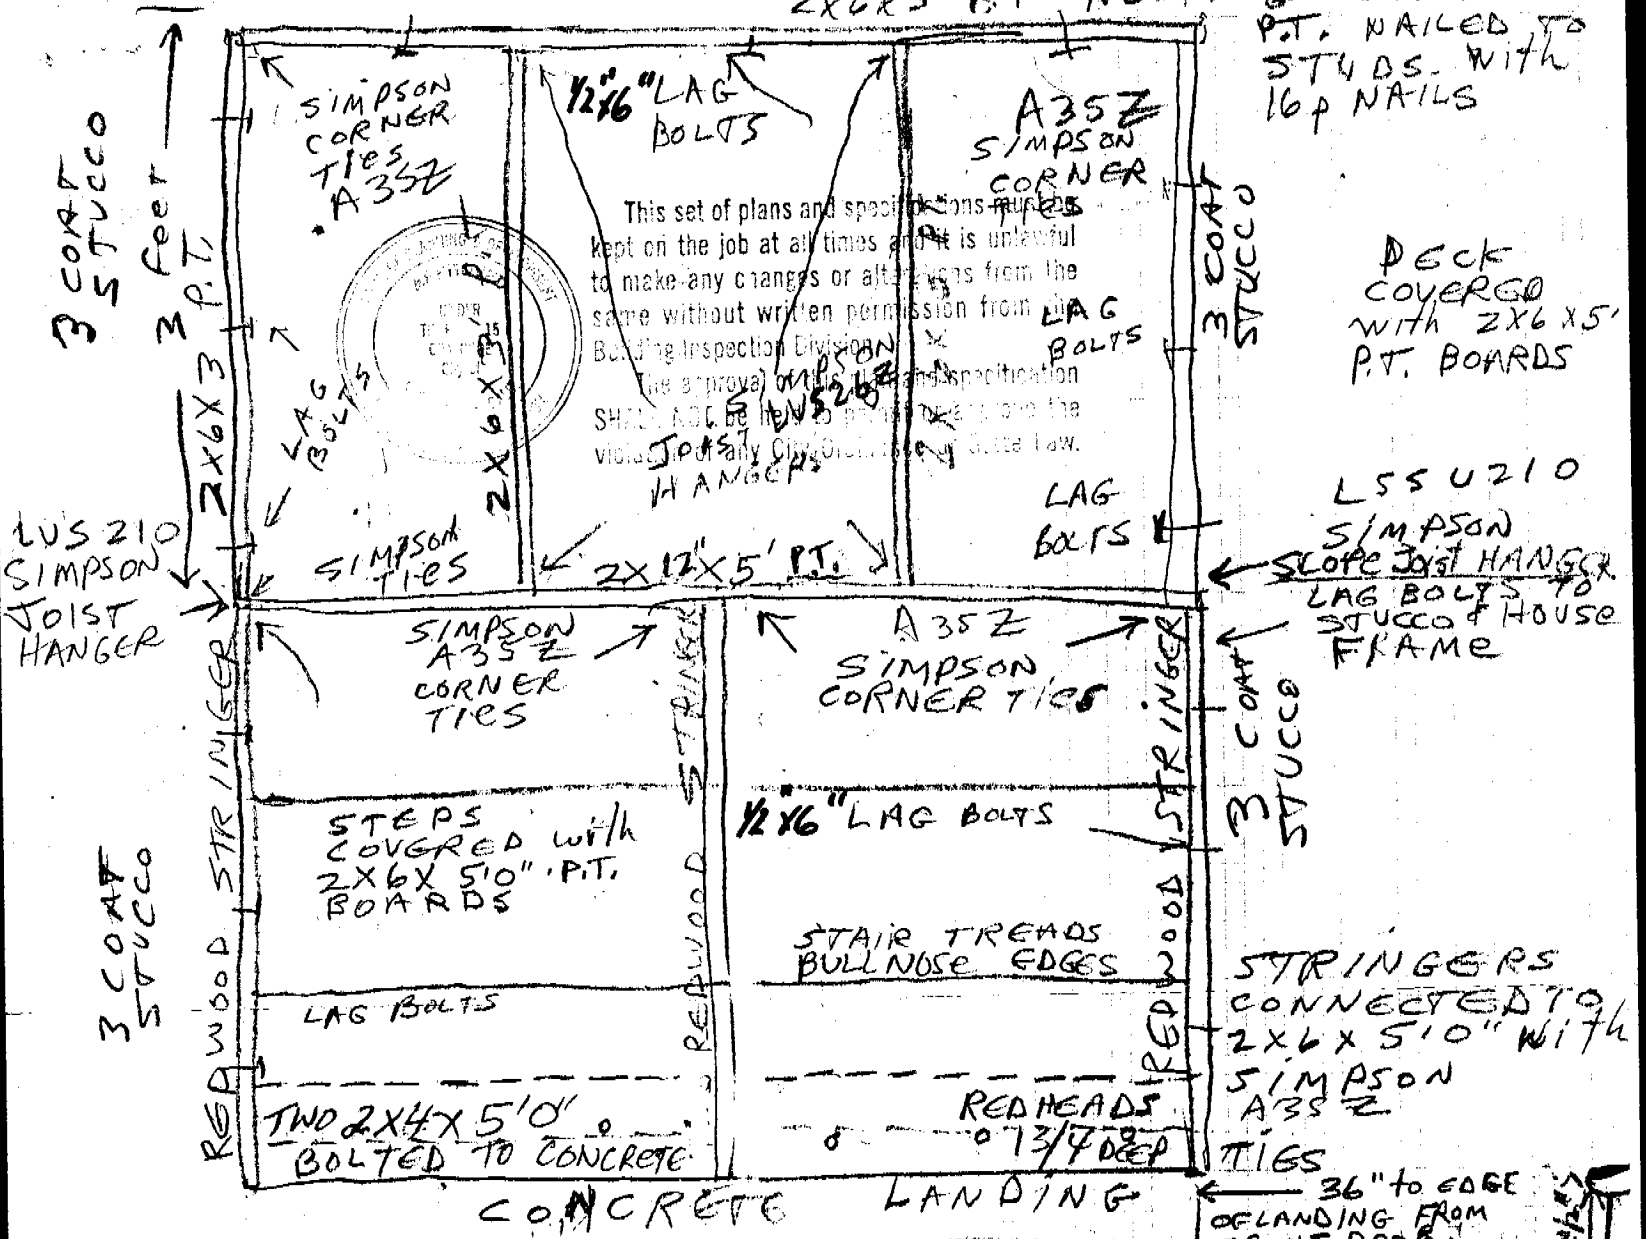 P.T. NAILED TO
STUDS. With
16p NAILS
SIMPSON
CORNER
Ties
A35Z
1/2"x6" LAG
BOLTS
A35Z
SIMPSON
CORNER
Ties
3 COAT
STUCCO
3 feet
2X6X3 P.T.
This set of plans and specifications must be
kept on the job at all times and it is unlawful
to make any changes or alterations from the
same without written permission from the
Building Inspection Division.
The approval of this plan and specification
SHALL NOT be held to permit or approve the
violation of any City Ordinance or State Law.
2X6X3' P.T.
LAG
BOLTS
LAG
BOLTS
3 COAT
STUCCO
DECK
COVERED
with 2X6X5'
P.T. BOARDS
SIMPSON
LUS26Z
JOAST
HANGERS
LAG
BOLTS
SIMPSON
TIES
2X12"X5' P.T.
LUS210
SIMPSON
JOIST
HANGER
LSSU210
SIMPSON
SLOPE Joist HANGER
LAG BOLTS TO
STUCCO & HOUSE
FRAME
SIMPSON
A35Z
CORNER
TIES
A35Z
SIMPSON
CORNER TIES
REDWOOD STRINGER
REDWOOD STRINGER
REDWOOD STRINGER
3 COAT
STUCCO
3 COAT
STUCCO
STEPS
COVERED with
2X6X 5'0" P.T.
BOARDS
1/2"x6" LAG BOLTS
STAIR TREADS
BULLNOSE EDGES
LAG BOLTS
STRINGERS
CONNECTED TO
2X6X 5'0" With
SIMPSON
A35Z
TIES
TWO 2X4X 5'0"
BOLTED TO CONCRETE
REDHEADS
1 3/4 DEEP
CONCRETE LANDING
36" to EDGE
OF LANDING FROM